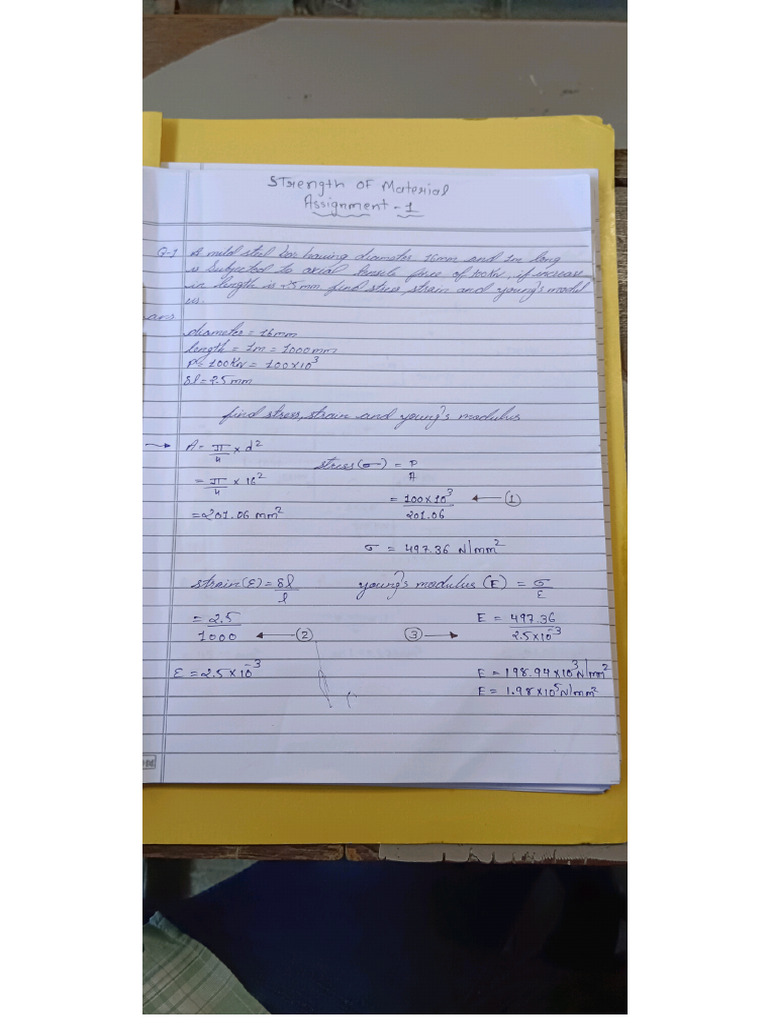 Strength of Material
Assignment - 1
Q-1 A mild steel bar having diameter 16mm and 1m long
is Subjected to axial tensile force of 100KN, if increase
in length is 2.5 mm find stress, strain and young's modul
us.
ans
diameter = 16mm
length = 1m = 1000mm
P = 100KN = 100×10³
δl = 2.5 mm
find stress, strain and young's modulus
→ A = π/4 × d²
= π/4 × 16²
= 201.06 mm²
stress (σ) = P/A
= 100×10³/201.06 ← ①
σ = 497.36 N/mm²
strain (ε) = δl/l
= 2.5/1000 ← ②
ε = 2.5×10⁻³
young's modulus (E) = σ/ε
③ → E = 497.36/2.5×10⁻³
E = 198.94×10³ N/mm²
E = 1.98×10⁵ N/mm²